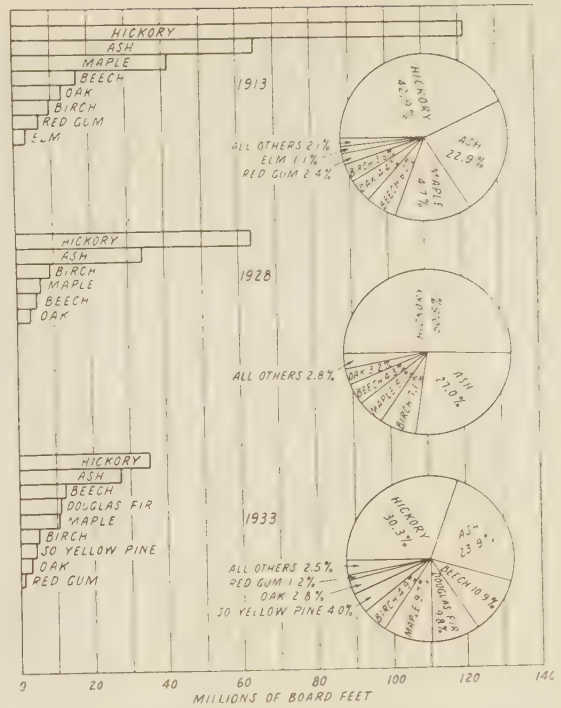 HICKORY
ASH
MAPLE
BEECH
OAK
BIRCH
RED GUM
ELM
1913
HICKORY
42.9%
ASH
22.9%
MAPLE
BEECH
OAK
BIRCH
ALL OTHERS 2.1%
ELM 1.1%
RED GUM 2.4%
HICKORY
ASH
BIRCH
MAPLE
BEECH
OAK
1928
HICKORY
ASH
27.0%
BIRCH 7.1%
MAPLE
BEECH
OAK 3.2%
ALL OTHERS 2.8%
HICKORY
ASH
BEECH
DOUGLAS FIR
MAPLE
BIRCH
SO YELLOW PINE
OAK
RED GUM
1933
HICKORY
30.3%
23.9
BEECH 10.9%
DOUGLAS FIR
9.8%
MAPLE
BIRCH 4.9%
ALL OTHERS 2.5%
RED GUM 1.2%
OAK 2.8%
SO YELLOW PINE 4.0%
0 20 40 60 80 100 120 140
MILLIONS OF BOARD FEET